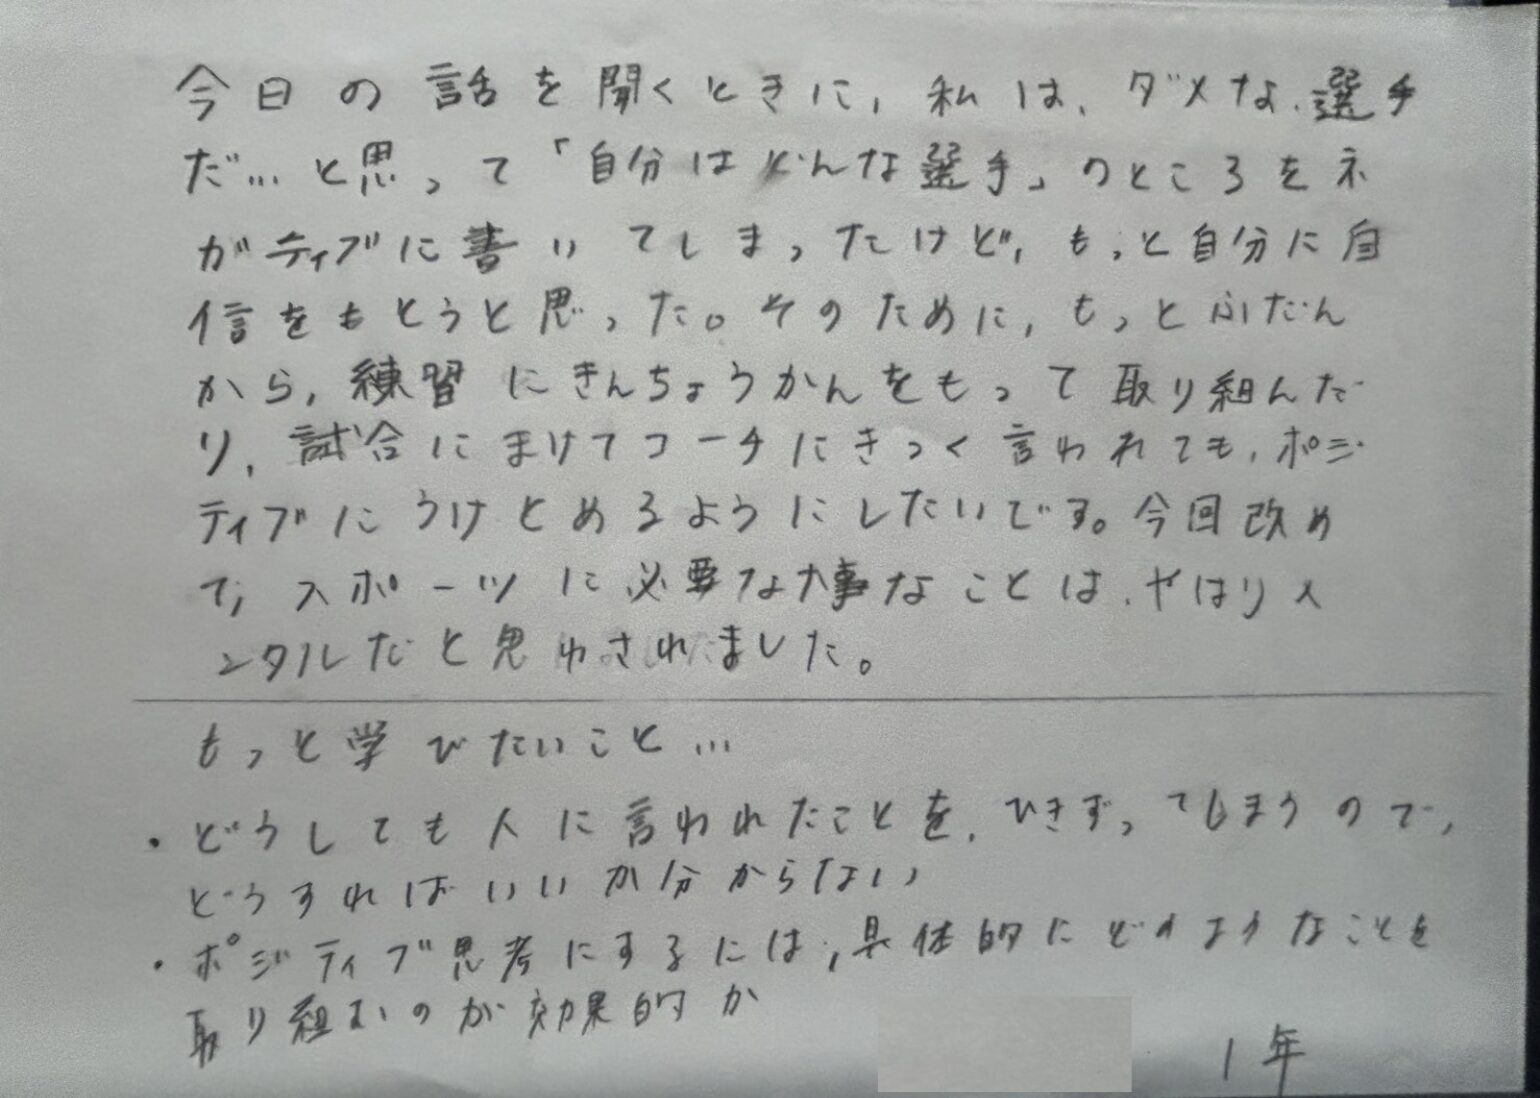 今日の話を聞くときに，私は、ダメな、選手
だ…と思って「自分はどんな選手」のところをネ
ガティブに書いてしまったけど，もっと自分に自
信をもとうと思った。そのために，もっとふだん
から，練習にきんちょうかんをもって取り組んだ
り，試合にまけてコーチにきつく言われても，ポジ
ティブにうけとめるようにしたいです。今回改め
て，スポーツに必要な大事なことは、やはりメ
ンタルだと思わされました。
もっと学びたいこと…
・どうしても人に言われたことを，ひきずってしまうので，
どうすればいいか分からない
・ポジティブ思考にするには，具体的にどのようなことを
取り組むのが効果的か
1年